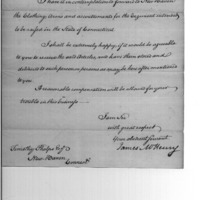 I have in contemplation to send to New Haven
the Clothing, arms and accoutrements for the Regiment intended
to be raised in the State of Connecticut
I shall be extremely happy, if it would be agreeable
to you to receive the said Articles, and have them stored and
delivered to such person or persons as may be hereafter mentioned to
you.
A reasonable compensation will be allowed for your
trouble in this business.
I am Sir
with great respect
Your obedient Servant
James McHenry
Timothy Phelps Esqr
New Haven
Connect.